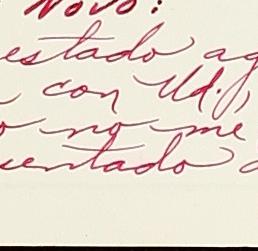 Novo:
estado ag
con Ud.,
o no me
sentado a